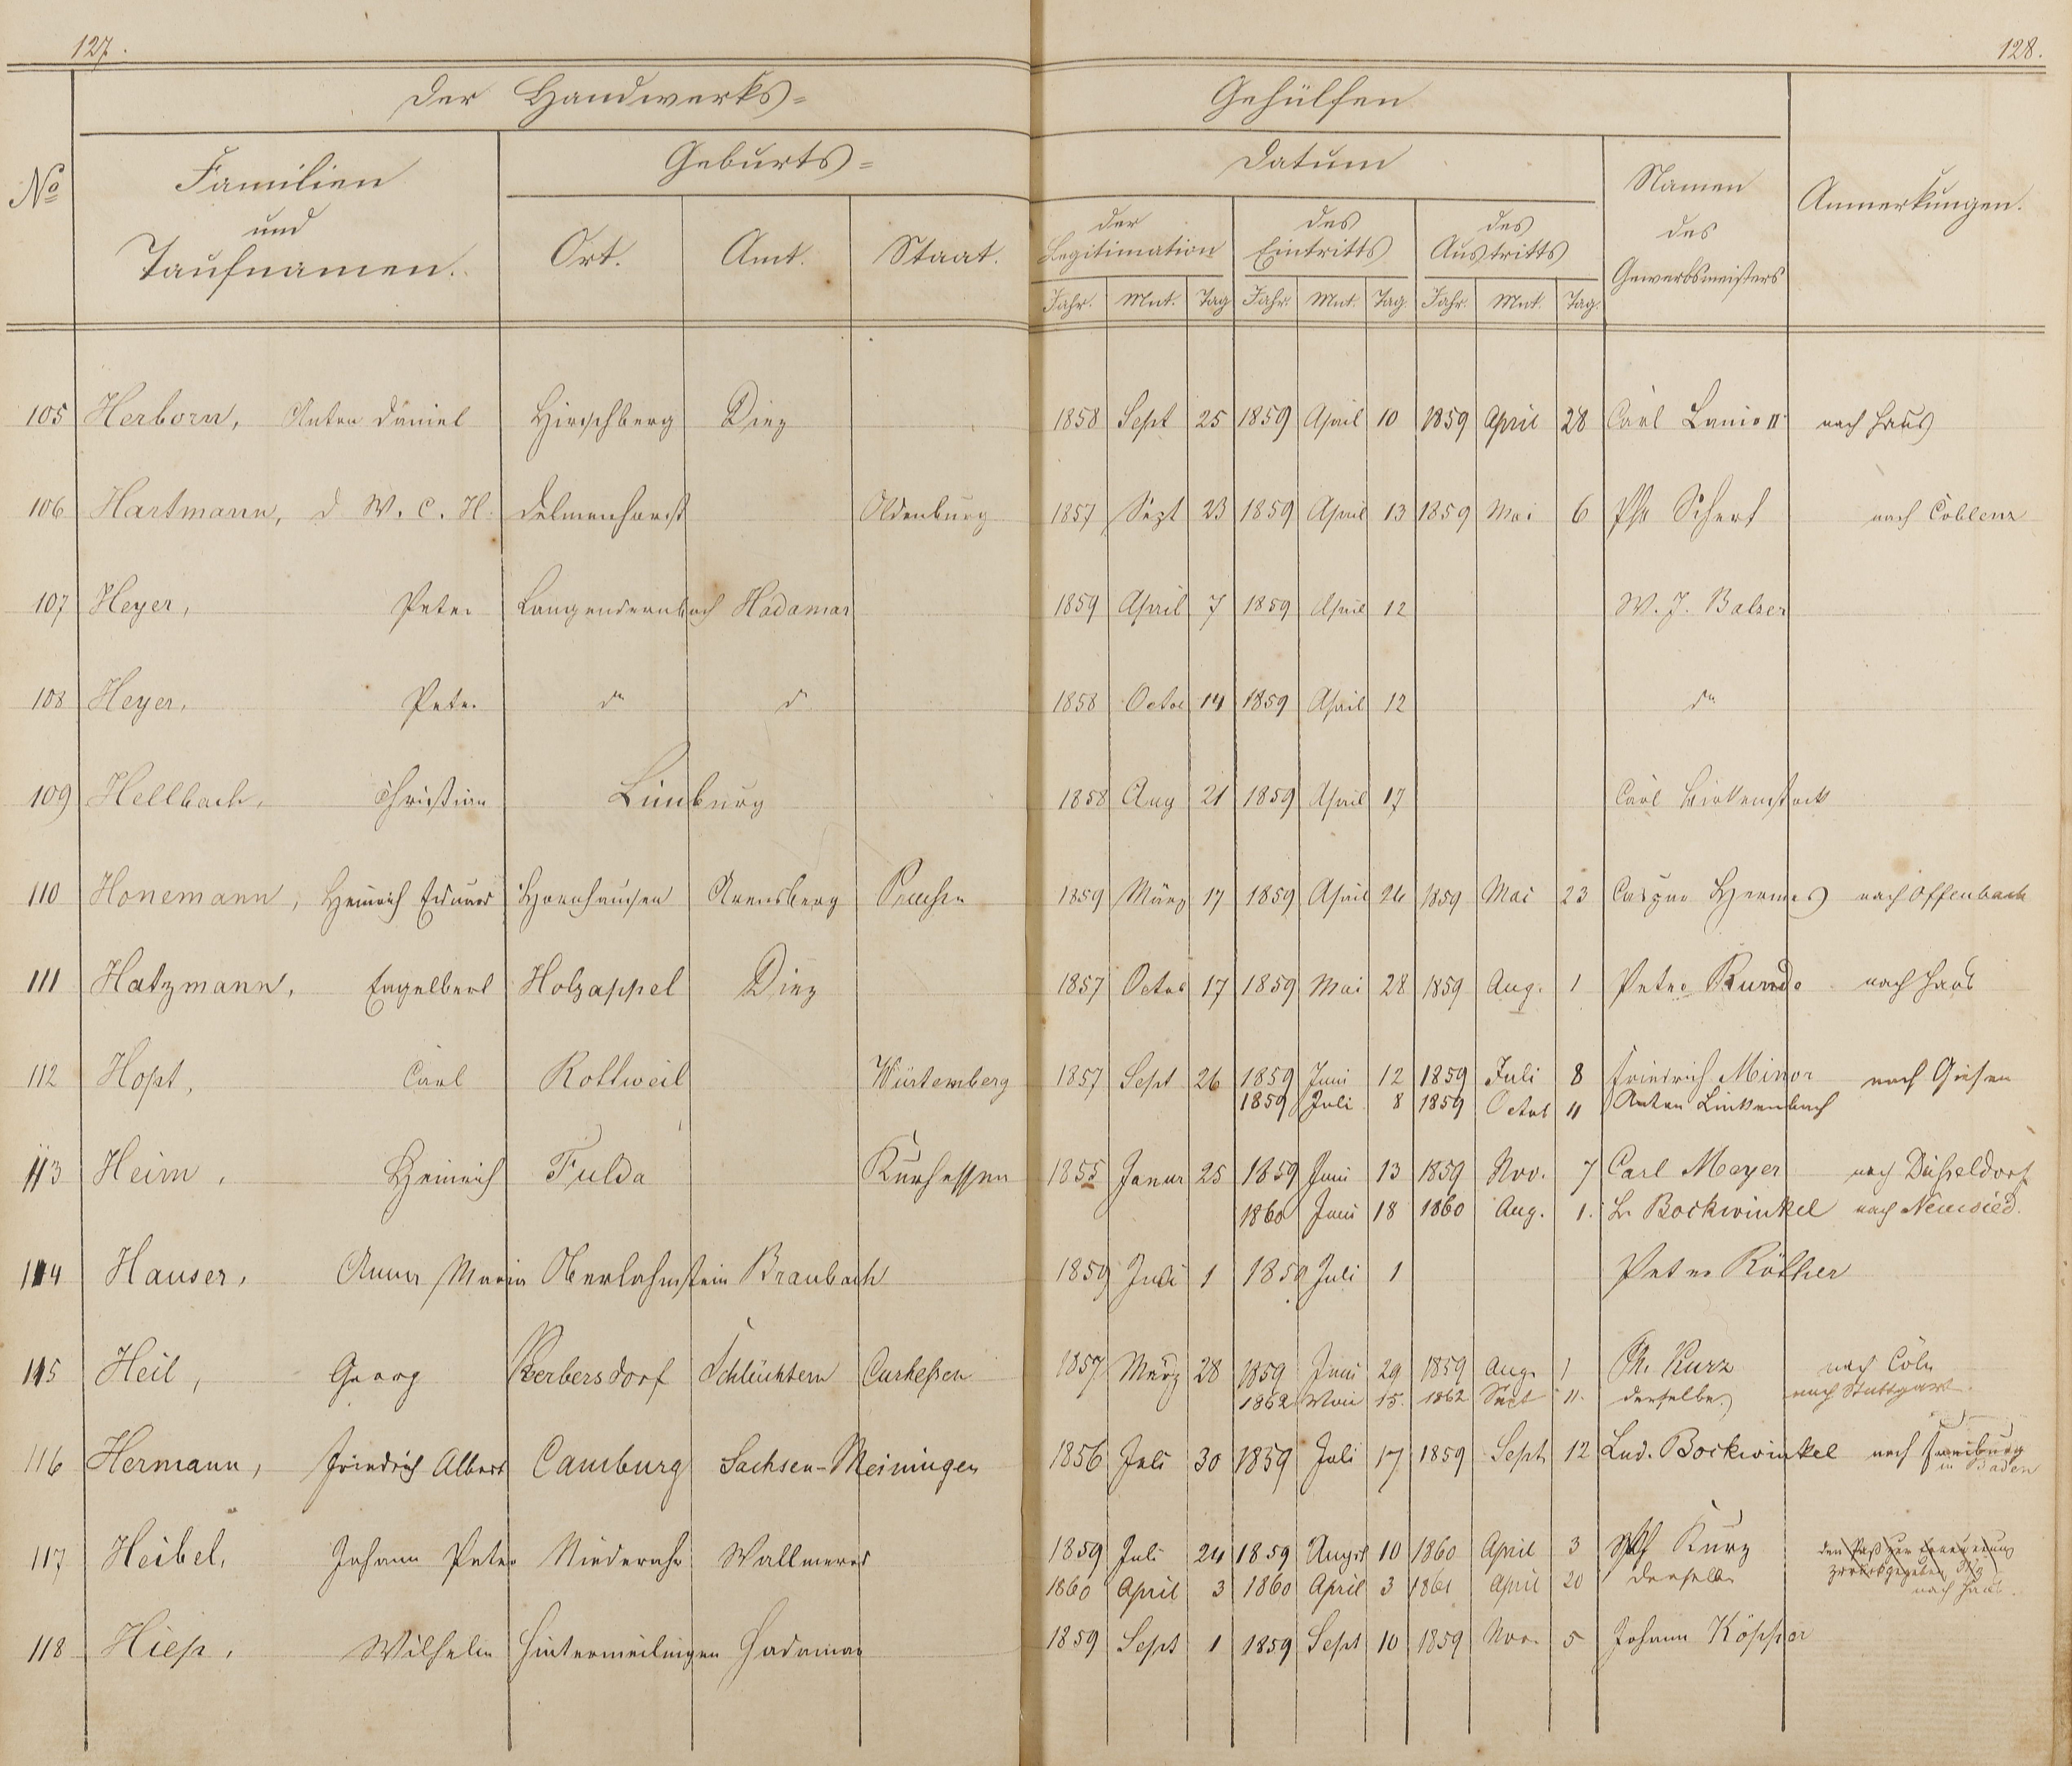 127.
128.
Der Handwerks=
Gehülfen
No
Familien
und
Taufnamen.
Geburts=
Datum
Ort.
Amt.
Staat.
der
Legitimation
des
Eintritts
des
Austritts
Namen
des
Gewerbsmeisters
Anmerkungen.
Jahr. Mnt. Tag Jahr. Mnt. Tag. Jahr. Mnt. Tag.
105 Herborn, Anton Daniel Hirschberg Diez 1858 Sept 25 1859 April 10 1859 April 28 Carl Lanio II nach Haus
106 Hartmann, D W. C. H. Delmenhorst Oldenburg 1857 Sept 23 1859 April 13 1859 Mai 6 Scherf nach Coblenz
107 Heyer, Peter Langendernbach Hadamar 1859 April 7 1859 April 12 W. J. Balser
108 Heyer, Peter do d 1858 Octbr 14 1859 April 12 do
109 Hellbach, Christian Limburg 1858 Aug 21 1859 April 17 Carl Birkenstock
110 Honemann, Heinrich Eduard Arensberg Preußen 1859 März 17 1859 April 26 1859 Mai 23 Caspar Hermes nach Offenbach
111 Hatzmann, Engelbert Holzappel Diez 1857 Octob 17 1859 Mai 28 1859 Aug. 1 Peter nach Haus
112 Hopt, Carl Rottweil Würtemberg 1857 Sept 26 1859 Juni 12 1859 Juli 8 Friedrich Minor nach Giesen
1859 Juli 8 1859 Octob 11 Anton Linkenbach
113 Heim, Heinrich Fulda Kurhessen 1855 Januar 25 1859 Juni 13 1859 Nov. 7 Carl Meyer nach Düsseldorf
1860 Juni 18 1860 Aug. 1. L. Bockwinkel nach Neuwied.
114 Hauser, Anna Maria Oberlahnstein Braubach 1859 Juli 1 1859 Juli 1 Peter Köther
115 Heil, Georg Kerbersdorf Schlüchtern Curheßen 1857 März 28 1859 Juni 29 1859 Aug. 1 Ph. Kurz nach Cöln
1862 Mai 15. 1862 Sept 11. derselbe nach Stuttgart.
116 Hermann, Friedrich Albert Camburg Sachsen-Meiningen 1856 Juli 30 1859 Juli 17 1859 Sept 12 Lud. Bockwinkel nach Freiburg
in Baden
117 Heibel, Johann Peter Niederahr Wallmerod 1859 Juli 24 1859 August 10 1860 April 3 Kurz den Paß zur Erneuerung
zurückgegeben
1860 April 3 1860 April 3 1861 April 20 derselbe nach Haus.
118 Hiep, Wilhelm Hintermeilingen Hadamar 1859 Sept 1 1859 Sept 10 1859 Nov. 5 Johann Köpper